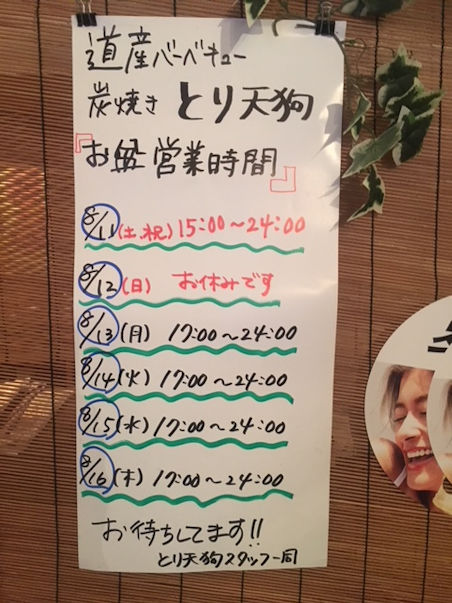 道産バーベキュー
炭焼き とり天狗
『お盆営業時間』
8/11(土、祝) 15:00～24:00
8/12(日) お休みです
8/13(月) 17:00～24:00
8/14(火) 17:00～24:00
8/15(水) 17:00～24:00
8/16(木) 17:00～24:00
お待ちしてます!!
とり天狗スタッフ一同